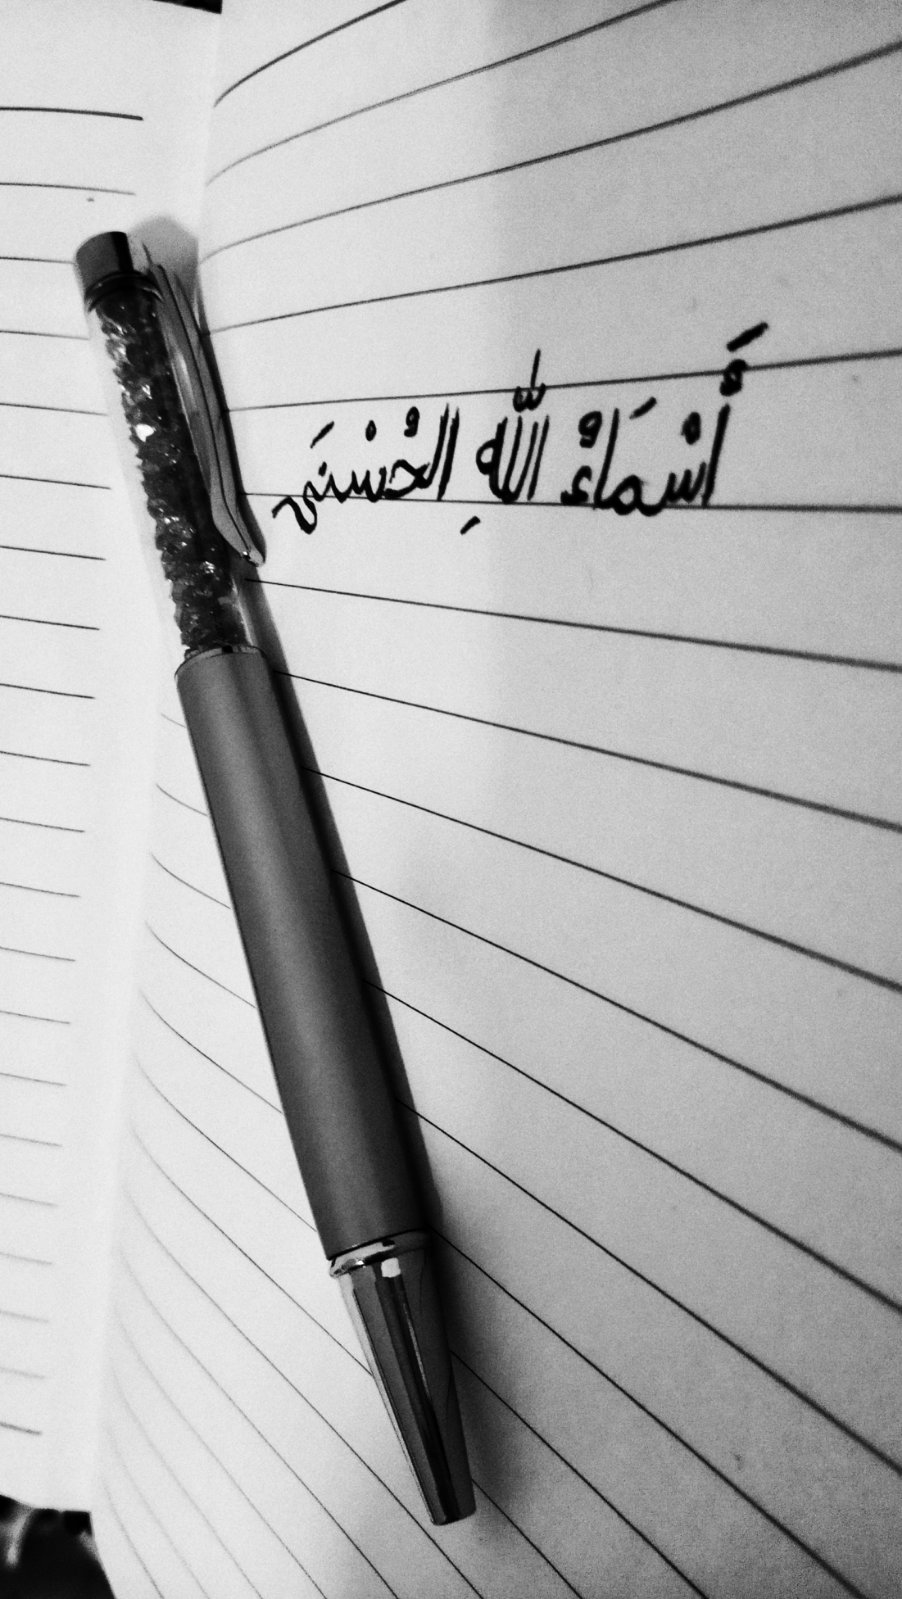 أَسْمَاءُ اللّٰهِ الحُسْنَى